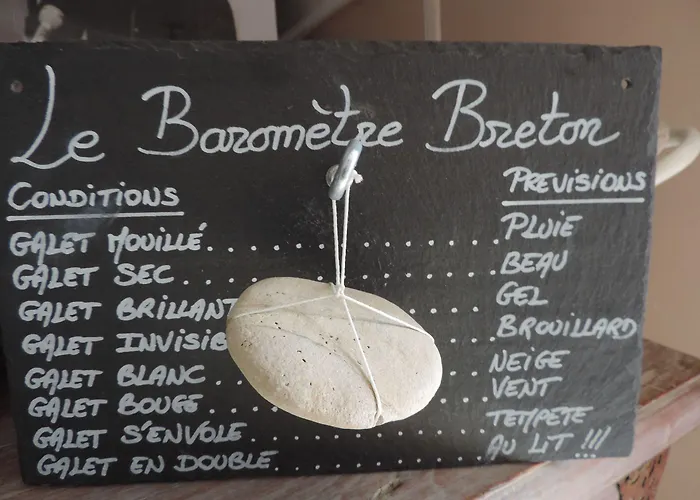 Le Baromètre Breton
CONDITIONS PREVISIONS
GALET MOUILLÉ. . . . . . . . . . . . . . . PLUIE
GALET SEC . . . . . . . . . . . . . . . BEAU
GALET BRILLANT . . . . . GEL
GALET INVISIB . . . . BROUILLARD
GALET BLANC . . . . NEIGE
GALET BOUGE . . . . VENT
GALET S'ENVOLE . . . . . . . . . . . . TEMPETE
GALET EN DOUBLE. . . . . . . . . . . . AU LIT !!!